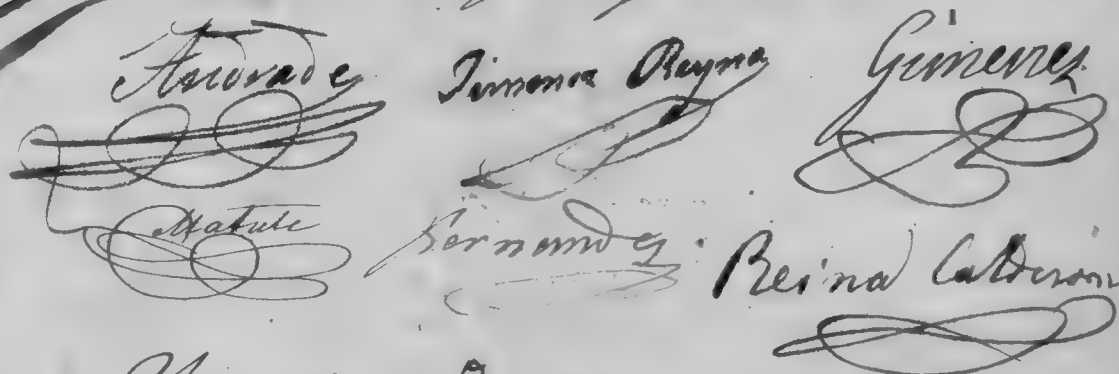 Andrade Jimena Reyna Gimenez
Matute Fernandez Reina Calderon